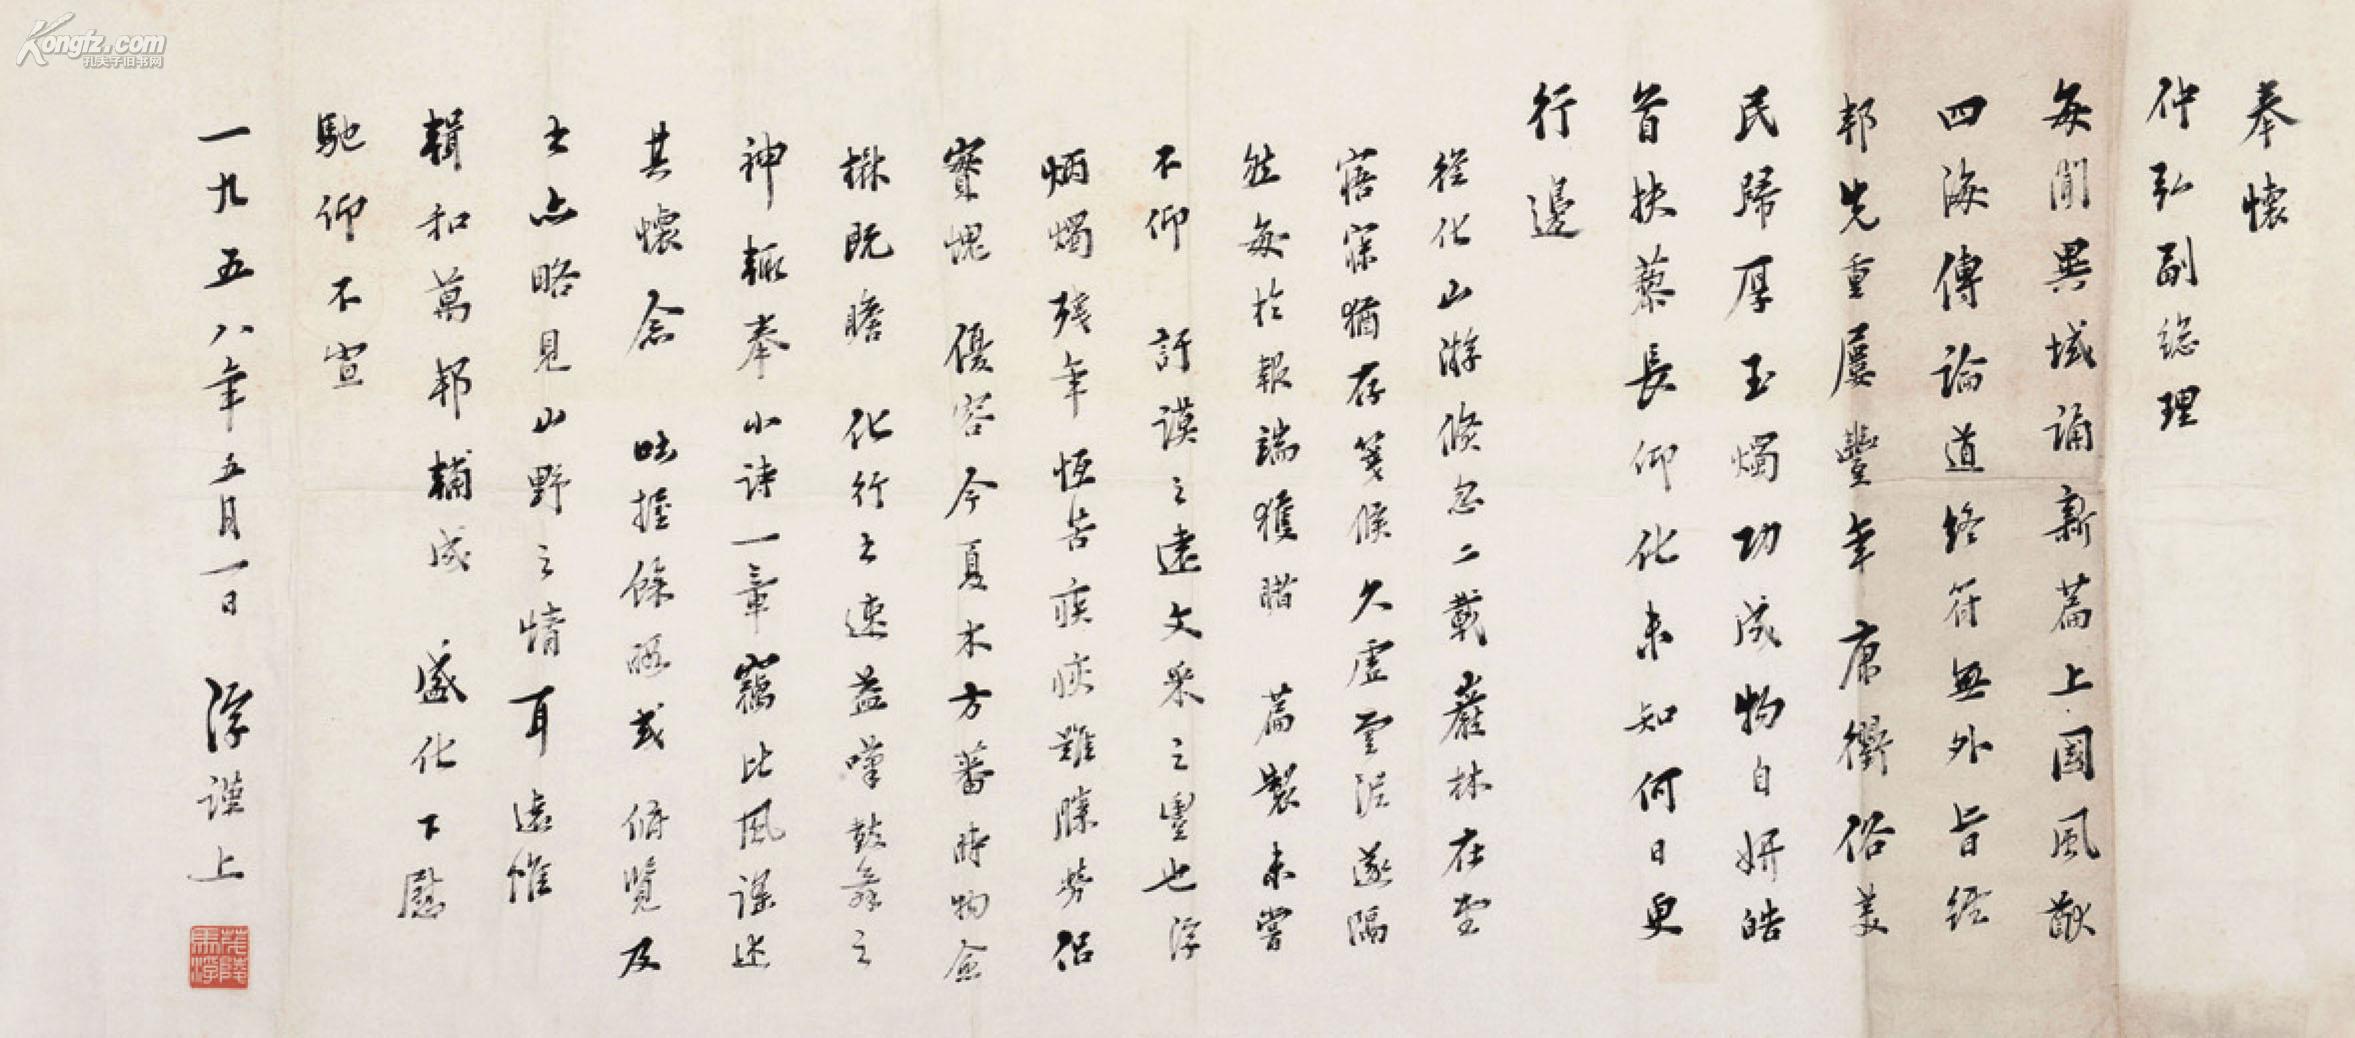 奉懷
仲弘副總理
每聞異域誦新篇上國風猷
四海傳論道終符無外旨經
邦先重屢豐年康衢俗美
民歸厚玉燭功成物自妍皓
首扶藜長仰化未知何日更
行邊
從化山游倏忽二載巖林在望
寤寐猶存箋候久虛雲泥遂隔
然每於報端獲睹 篇製未嘗
不仰 訏謨之遠文采之豐也浮
炳燭殘年恆苦疾疢雖朦勞侶
賓愧 優容今夏木方蕃時物僉
楙既瞻 化行之速益嘆鼓舞之
神輒奉小詩一章竊比風謠述
其懷念 吐握餘暇或 俯覽及
之亦略見山野之情耳遠惟
輯和萬邦輔成 盛化下慰
馳仰不宣
一九五八年五月一日 浮謹上
茂陵馬浮
Kongfz.com
孔夫子旧书网